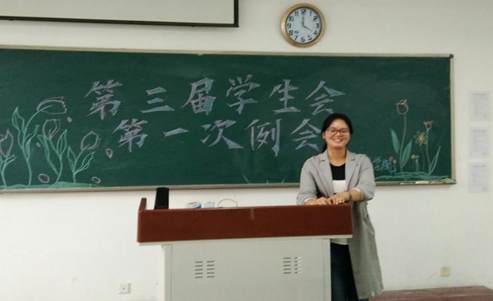 第三届学生会
第一次例会